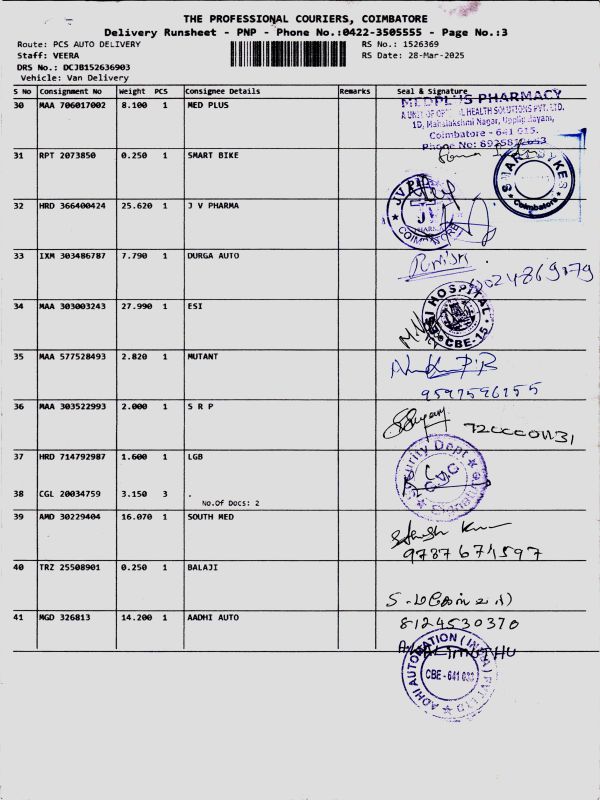 THE PROFESSIONAL COURIERS, COIMBATORE
Delivery Runsheet - PNP - Phone No.:0422-3505555 - Page No.:3
Route: PCS AUTO DELIVERY RS No.: 1526369
Staff: VEERA RS Date: 28-Mar-2025
DRS No.: DCJB152636903
Vehicle: Van Delivery
S No Consignment No Weight PCS Consignee Details Remarks Seal & Signature
30 MAA 706017002 8.100 1 MED PLUS
MEDPLUS PHARMACY
HEALTH SOLUTIONS PVT. LTD.
1D, Mahalakshmi Nagar, Uppilipalayam,
Coimbatore - 641 015.
Phone No:
31 RPT 2073850 0.250 1 SMART BIKE
SMART BIKES
Coimbatore
32 HRD 366400424 25.620 1 J V PHARMA
JV PHARMA
COIMBATORE
33 IXM 303486787 7.790 1 DURGA AUTO
34 MAA 303003243 27.990 1 ESI
ESI HOSPITAL
CBE-15
35 MAA 577528493 2.820 1 MUTANT
36 MAA 303522993 2.000 1 S R P
37 HRD 714792987 1.600 1 LGB
Security Dept
38 CGL 20034759 3.150 3 .
No.Of Docs: 2
39 AMD 30229404 16.070 1 SOUTH MED
9787671597
40 TRZ 25508901 0.250 1 BALAJI
8124530370
41 MGD 326813 14.200 1 AADHI AUTO
ADHI AUTOMATION (INDIA) PVT LTD
CBE - 641 032